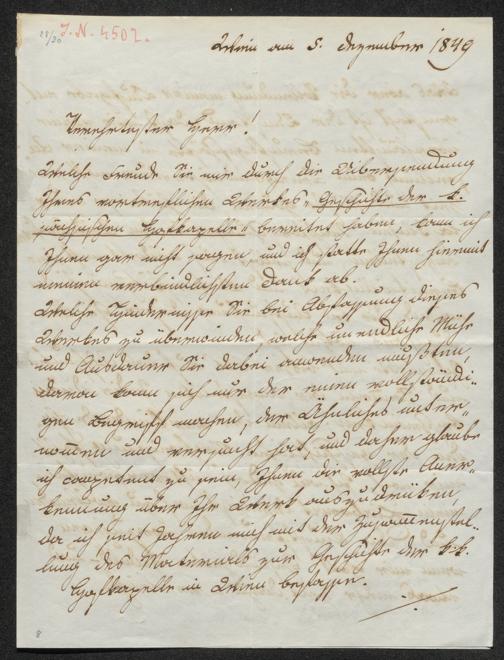 28/20 I. N. 4502.
Wien am 5. Dezember 1849
Verehrtester Herr!
Welche Freude Sie mir durch die Übersendung
Ihres vortrefflichen Werkes „Geschichte der k.
sächsischen Hofkapelle" bereitet haben, kann ich
Ihnen gar nicht sagen, und ich statte Ihnen hiermit
meinen verbindlichsten Dank ab.
Welche Hindernisse Sie bei Abfassung dieses
Werkes zu überwinden, welche unendliche Mühe
und Ausdauer Sie dabei anwenden mußten,
davon kann sich nur der einen vollständi-
gen Begriff machen, der Ähnliches unter-
nommen und versucht hat, und daher glaube
ich competent zu sein, Ihnen die vollste Aner-
kennung über Ihr Werk auszudrücken,
da ich seit Jahren mich mit der Zusammenstel-
lung des Materials zur Geschichte der k. k.
Hofkapelle in Wien befasse.
8